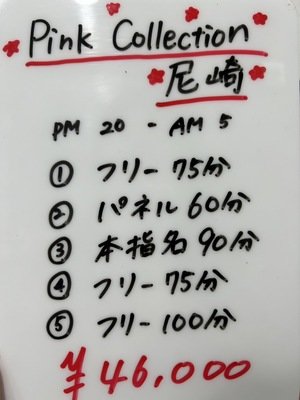 Pink Collection
尼崎
PM 20 - AM 5
① フリー 75分
② パネル 60分
③ 本指名 90分
④ フリー 75分
⑤ フリー 100分
¥46,000